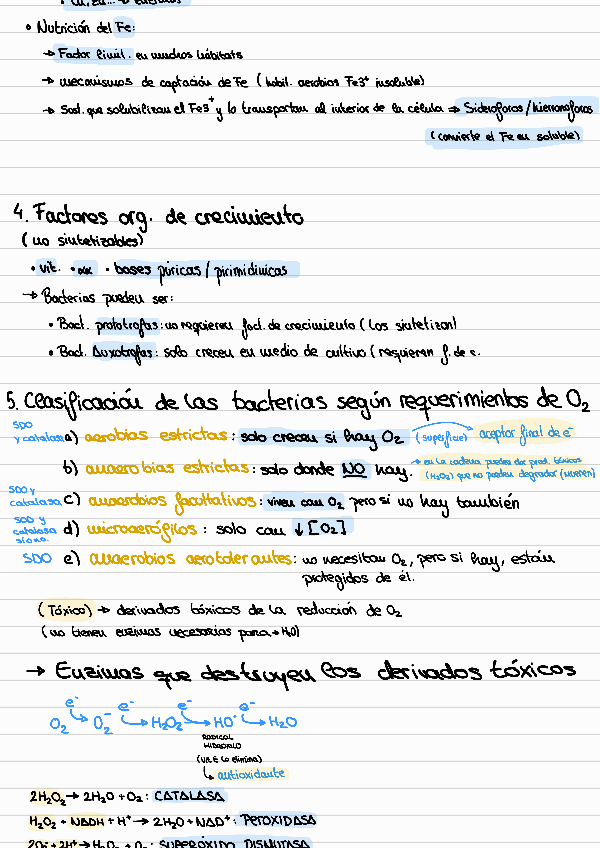 • Nutrición del Fe:
→ Factor limit. en muchos hábitats
→ mecanismos de captación de Fe (habil. aerobios Fe3+ insoluble)
→ Sust. que solubilizan el Fe3+ y lo transportan al interior de la célula ⇒ Sideroforos/hierronoforos
(convierte el Fe en soluble)
4. Factores org. de crecimiento
(no sintetizables)
• vit. • aa • bases púricas/pirimidínicas
→ Bacterias pueden ser:
• Bact. prototrofas: no requieren fact. de crecimiento (los sintetizan)
• Bact. Auxotrofas: solo crecen en medio de cultivo (requieren f. de c.
5. Clasificación de las bacterias según requerimientos de O2
SDO y catalasa a) aerobias estrictas: solo crecen si hay O2 (superficie) aceptor final de e-
b) anaerobias estrictas: solo donde NO hay. → en la cadena pueden dar prod. tóxicos (H2O2) que no pueden degradar (mueren)
SDO y catalasa c) anaerobios facultativos: viven con O2 pero si no hay también
SDO y catalasa sí o no. d) microaerófilos: solo con ↓[O2]
SDO e) anaerobios aerotolerantes: no necesitan O2, pero si hay, están
protegidos de él.
(Tóxico) → derivados tóxicos de la reducción de O2
(no tienen enzimas necesarias para → H2O)
→ Enzimas que destruyen los derivados tóxicos
e- e- e- e-
O2 → O2- → H2O2 → HO· → H2O
RADICAL
HIDROXILO
(Vit E lo elimina)
↳ antioxidante
2H2O2 → 2H2O + O2: CATALASA
H2O2 + NADH + H+ → 2H2O + NAD+: PEROXIDASA
2O2- + 2H+ → H2O2 + O2: SUPERÓXIDO DISMUTASA